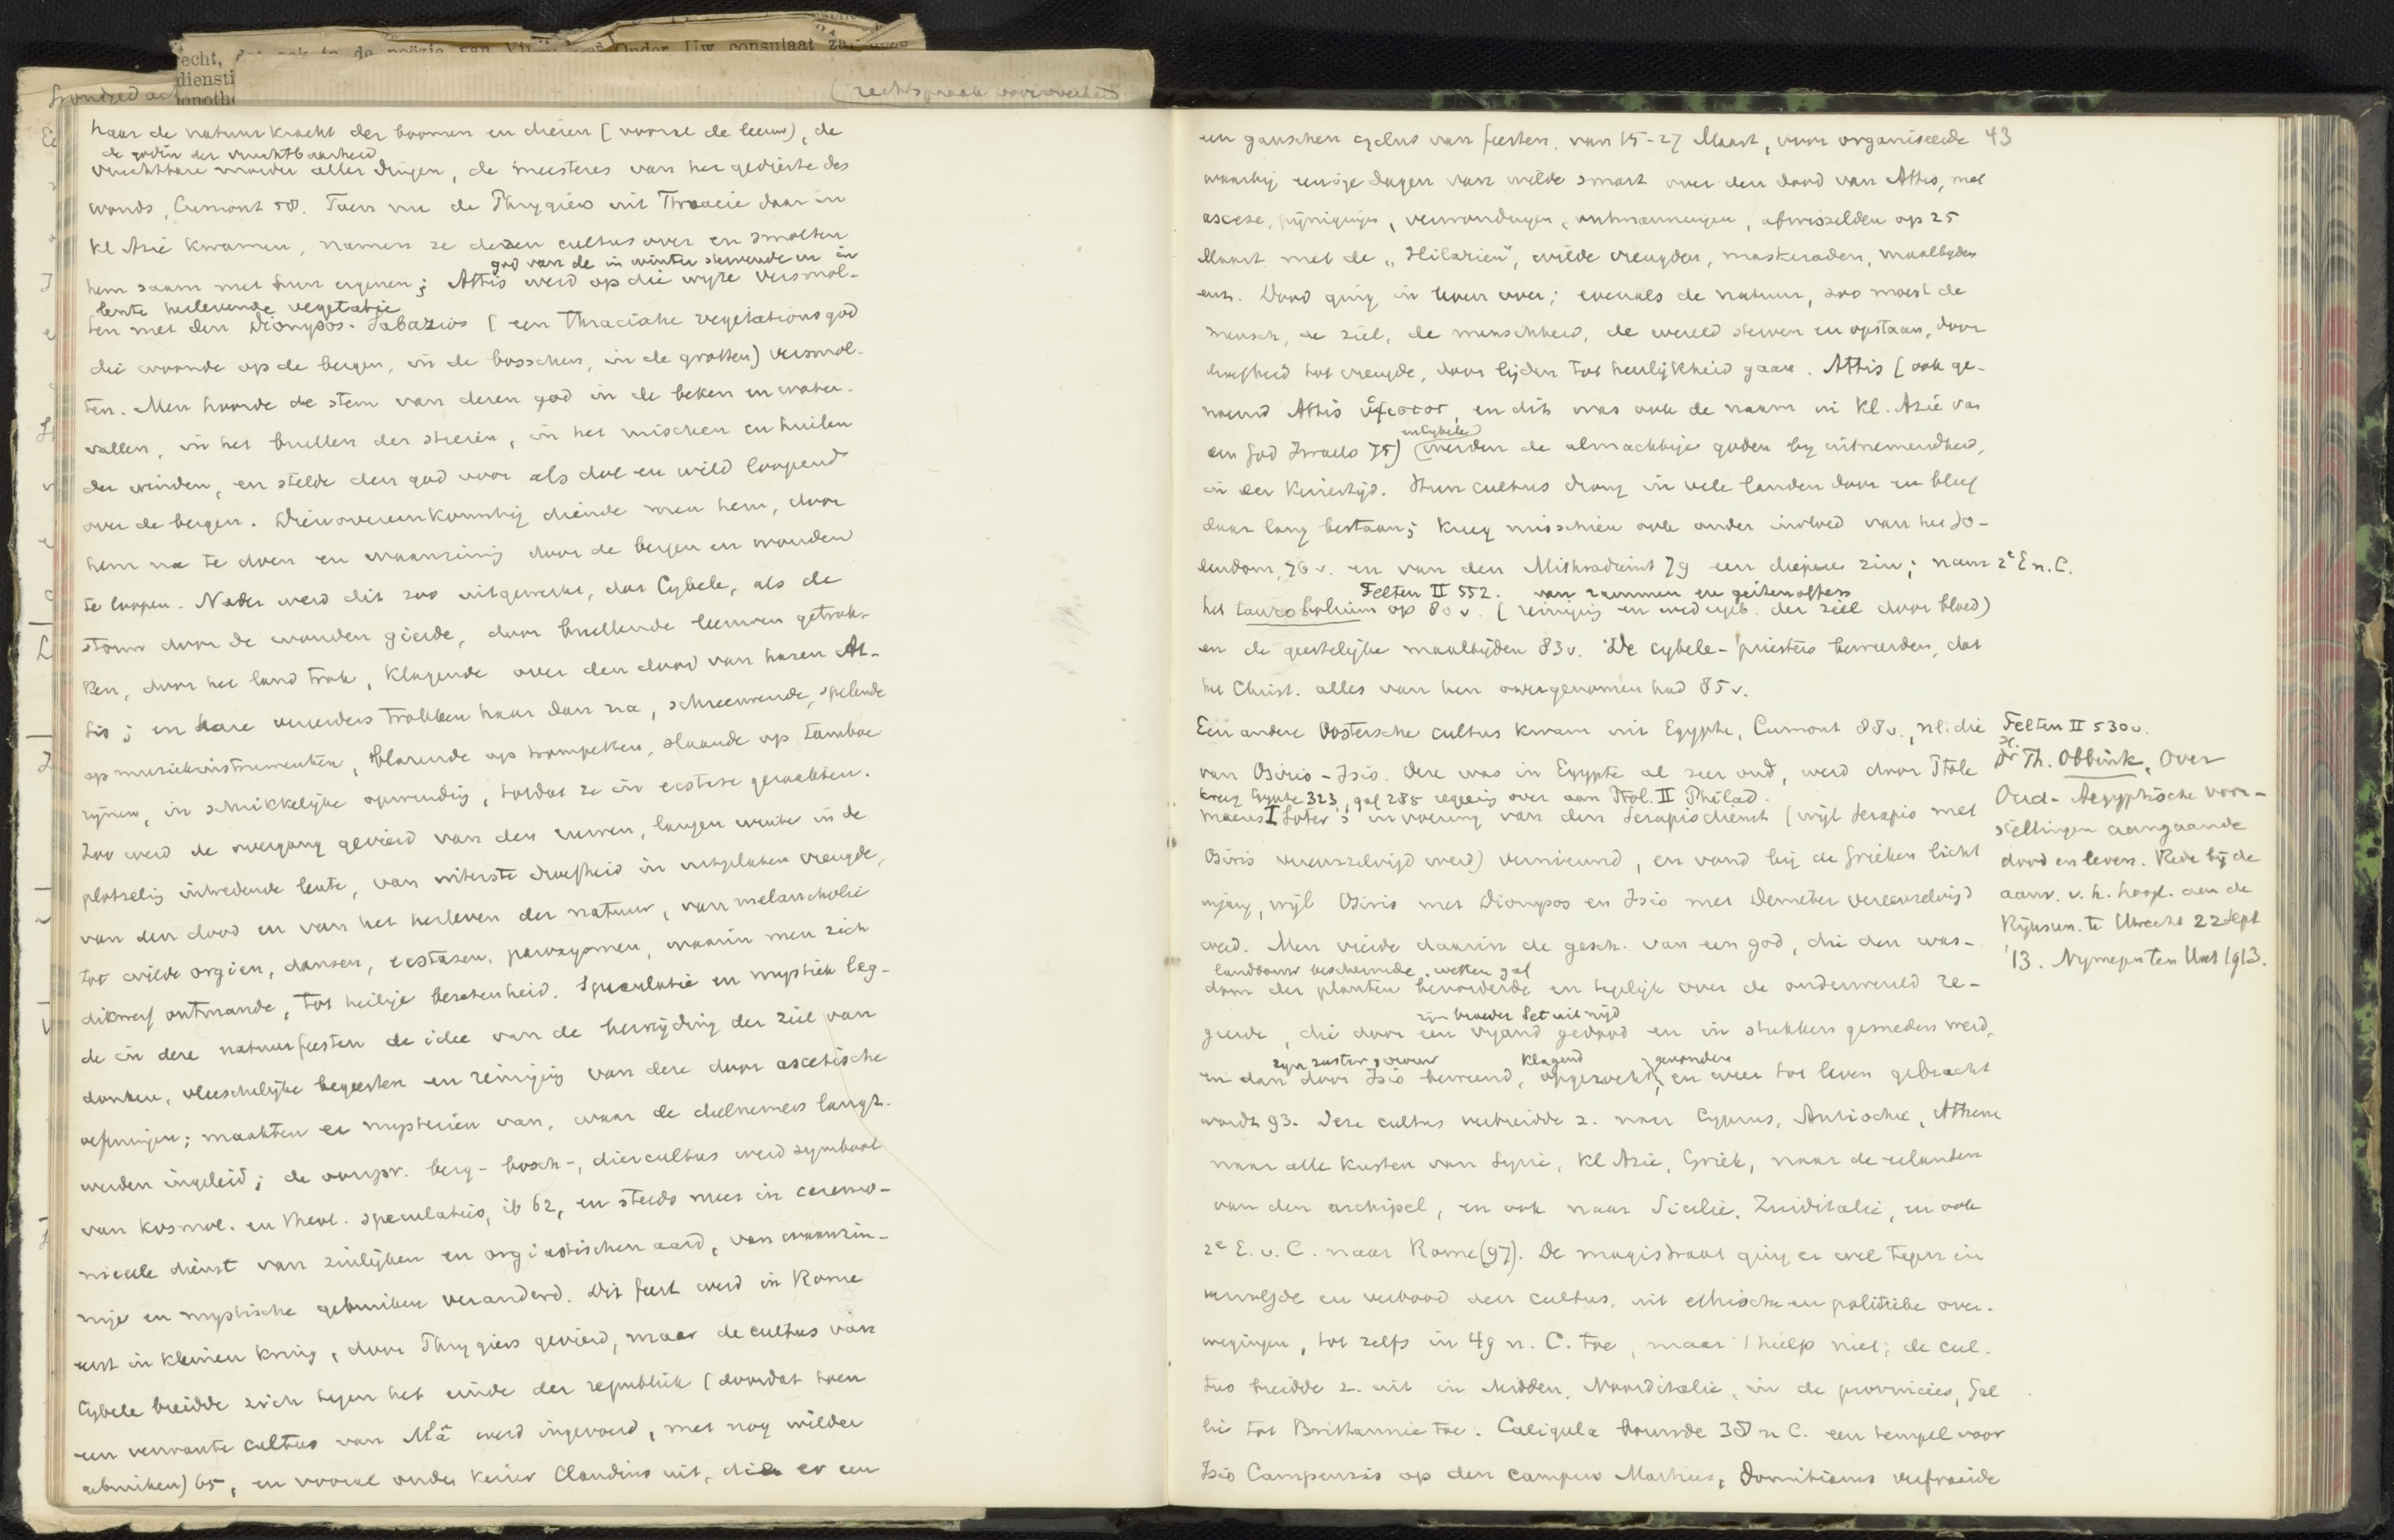 recht, dat ook in de poëzie van Onder Uw consulaat
diensti
onoth
rechtspraak
haar de natuurkracht der boomen en dieren (vooral de leeuw), de
de godin der vruchtbaarheid
vruchtbare moeder aller dingen, de meesteres van het gedierte des
wouds, Cumont 58. Toen nu de Phrygiërs uit Thracië daar in
Kl Azië kwamen, namen ze dezen cultus over en smolten
god van de in winter stervende en in
hem saam met hun eigenen; Attis werd op die wijze versmol-
lente herlevende vegetatie
ten met den Dionysos-Sabazios (een Thracische vegetationsgod
die woonde op de bergen, in de bosschen, in de grotten) versmol-
ten. Men hoorde de stem van dezen god in de beken en water-
vallen, in het brullen der stieren, in het ruischen en huilen
der winden, en stelde den god voor als dol en wild loopend
over de bergen. Dienovereenkomstig diende men hem, door
hem na te doen en waanzinnig door de bergen en wouden
te loopen. Nader werd dit zoo uitgewerkt, dat Cybele, als de
storm door de wouden gierde, door brullende leeuwen getrok-
ken, door het land trok, klagende over den dood van haren At-
tis; en hare vereerders trokken haar dan na, schreeuwende, spelende
op muziekinstrumenten, blazende op trompetten, slaande op tamboe
rijnen, in schrikkelijke opwinding, totdat ze in ecstase geraakten.
Zoo werd de overgang gevierd van den ruwen, langen winter in de
plotseling intredende lente, van uiterste droefheid in uitgelaten vreugde,
van den dood en van het herleven der natuur, van melancholie
tot wilde orgiën, dansen, ecstasen, paroxysmen, waarin men zich
dikwerf ontmande, tot heilige bezetenheid. Speculatie en mystiek leg-
de in deze natuurfeesten de idee van de bevrijding der ziel van
donkere, vleeschelijke begeerten en reiniging van deze door ascetische
oefeningen; maakten er mysteriën van, waar de deelnemers langz.
werden ingeleid; de oorspr. berg- bosch-, diercultus werd symbool
van kosmol. en theol. speculaties, ib 62, en steeds meer in ceremo-
nieele dienst van zinlijken en orgiastischen aard, van waanzin-
nige en mystische gebruiken veranderd. Dit feest werd in Rome
eerst in kleinen kring, door Phrygiers gevierd, maar de cultus van
Cybele breidde zich tegen het einde der republiek (doordat toen
een verwante cultus van Mâ werd ingevoerd, met nog wilder
gebruiken) 65, en vooral onder keizer Claudius uit, die er een
een ganschen cyclus van feesten, van 15-27 Maart, voor organiseerde 43
waarbij eenige dagen van wilde smart over den dood van Attis, met
ascese, pijnigingen, verwondingen, ontmanningen, afwisselden op 25
Maart met de "Hilariën", wilde vreugden, maskeraden, maaltijden
enz. Dood ging in leven over; evenals de natuur, zoo moest de
mensch, de ziel, de menschheid, de wereld sterven en opstaan, door
droefheid tot vreugde, door lijden tot heerlijkheid gaan. Attis (ook ge-
noemd Attis ὕψιστος, en dit was ook de naam in Kl. Azië van
en Cybele
den God Israels 75) werden de almachtige goden bij uitnemendheid,
in den keizertijd. Hun cultus drong in vele landen door en bleef
daar lang bestaan; kreeg misschien ook onder invloed van het Jo-
dendom, 76 v. en van den Mithradienst 79 een diepere zin; naar 2e E n. C.
Felten II 552. van rammen en geitenoffers
het taurobolium op 80 v. (reiniging en wedergeb. der ziel door bloed)
en de geestelijke maaltijden 83 v. De Cybele-priesters beweerden, dat
het Christ. alles van hen overgenomen had 85 v.
Een andere Oostersche cultus kwam uit Egypte, Cumont 88 v., nl. die
van Osiris-Isis. Deze was in Egypte al zeer oud, werd door Ptole
kreeg Egypte 323, gaf 285 regeering over aan Ptol. II Philad.
maeus I Soter's invoering van den Serapisdienst (wijl Serapis met
Osiris vereenzelvigd werd) vernieuwd, en vond bij de Grieken licht
ingang, wijl Osiris met Dionysos en Isis met Demeter vereenzelvigd
werd. Men vierde daarin de gesch. van een god, die den was-
landbouw beschermde, wetten gaf
dom der planten bevorderde en tegelijk over de onderwereld re-
zijn broeder Set uit nijd
geerde, die door een vijand gedood en in stukken gesneden werd,
zijn zuster, vrouw klagend gevonden
en dan door Isis beweend, opgezocht, en weer tot leven gebracht
wordt 93. Deze cultus verbreidde z. naar Cyprus, Antiochië, Athene
naar alle kusten van Syrië, Kl Azië, Griek, naar de eilanden
van den archipel, en ook naar Sicilië, Zuiditalië, en ook
2e E. v. C. naar Rome (97). De magistraat ging er wel tegen in
vervolgde en verbood deze cultus, uit ethische en politieke over-
wegingen, tot zelfs in 49 n. C. toe, maar 't hielp niet; de cul-
tus breidde z. uit in Midden, Noorditalië, in de provincies, Gal
lië tot Brittannie toe. Caligula bouwde 38 n C. een tempel voor
Isis Campensis op den campus Martius, Domitianus verfraaide
Felten II 530 v.
Dr H. Th. Obbink, Over
Oud-Aegyptische voor-
stellingen aangaande
dood en leven. Rede bij de
aanv. v. h. hoogl. aan de
Rijksun. te Utrecht 22 Sept
'13. Nijmegen ten Hoet 1913.